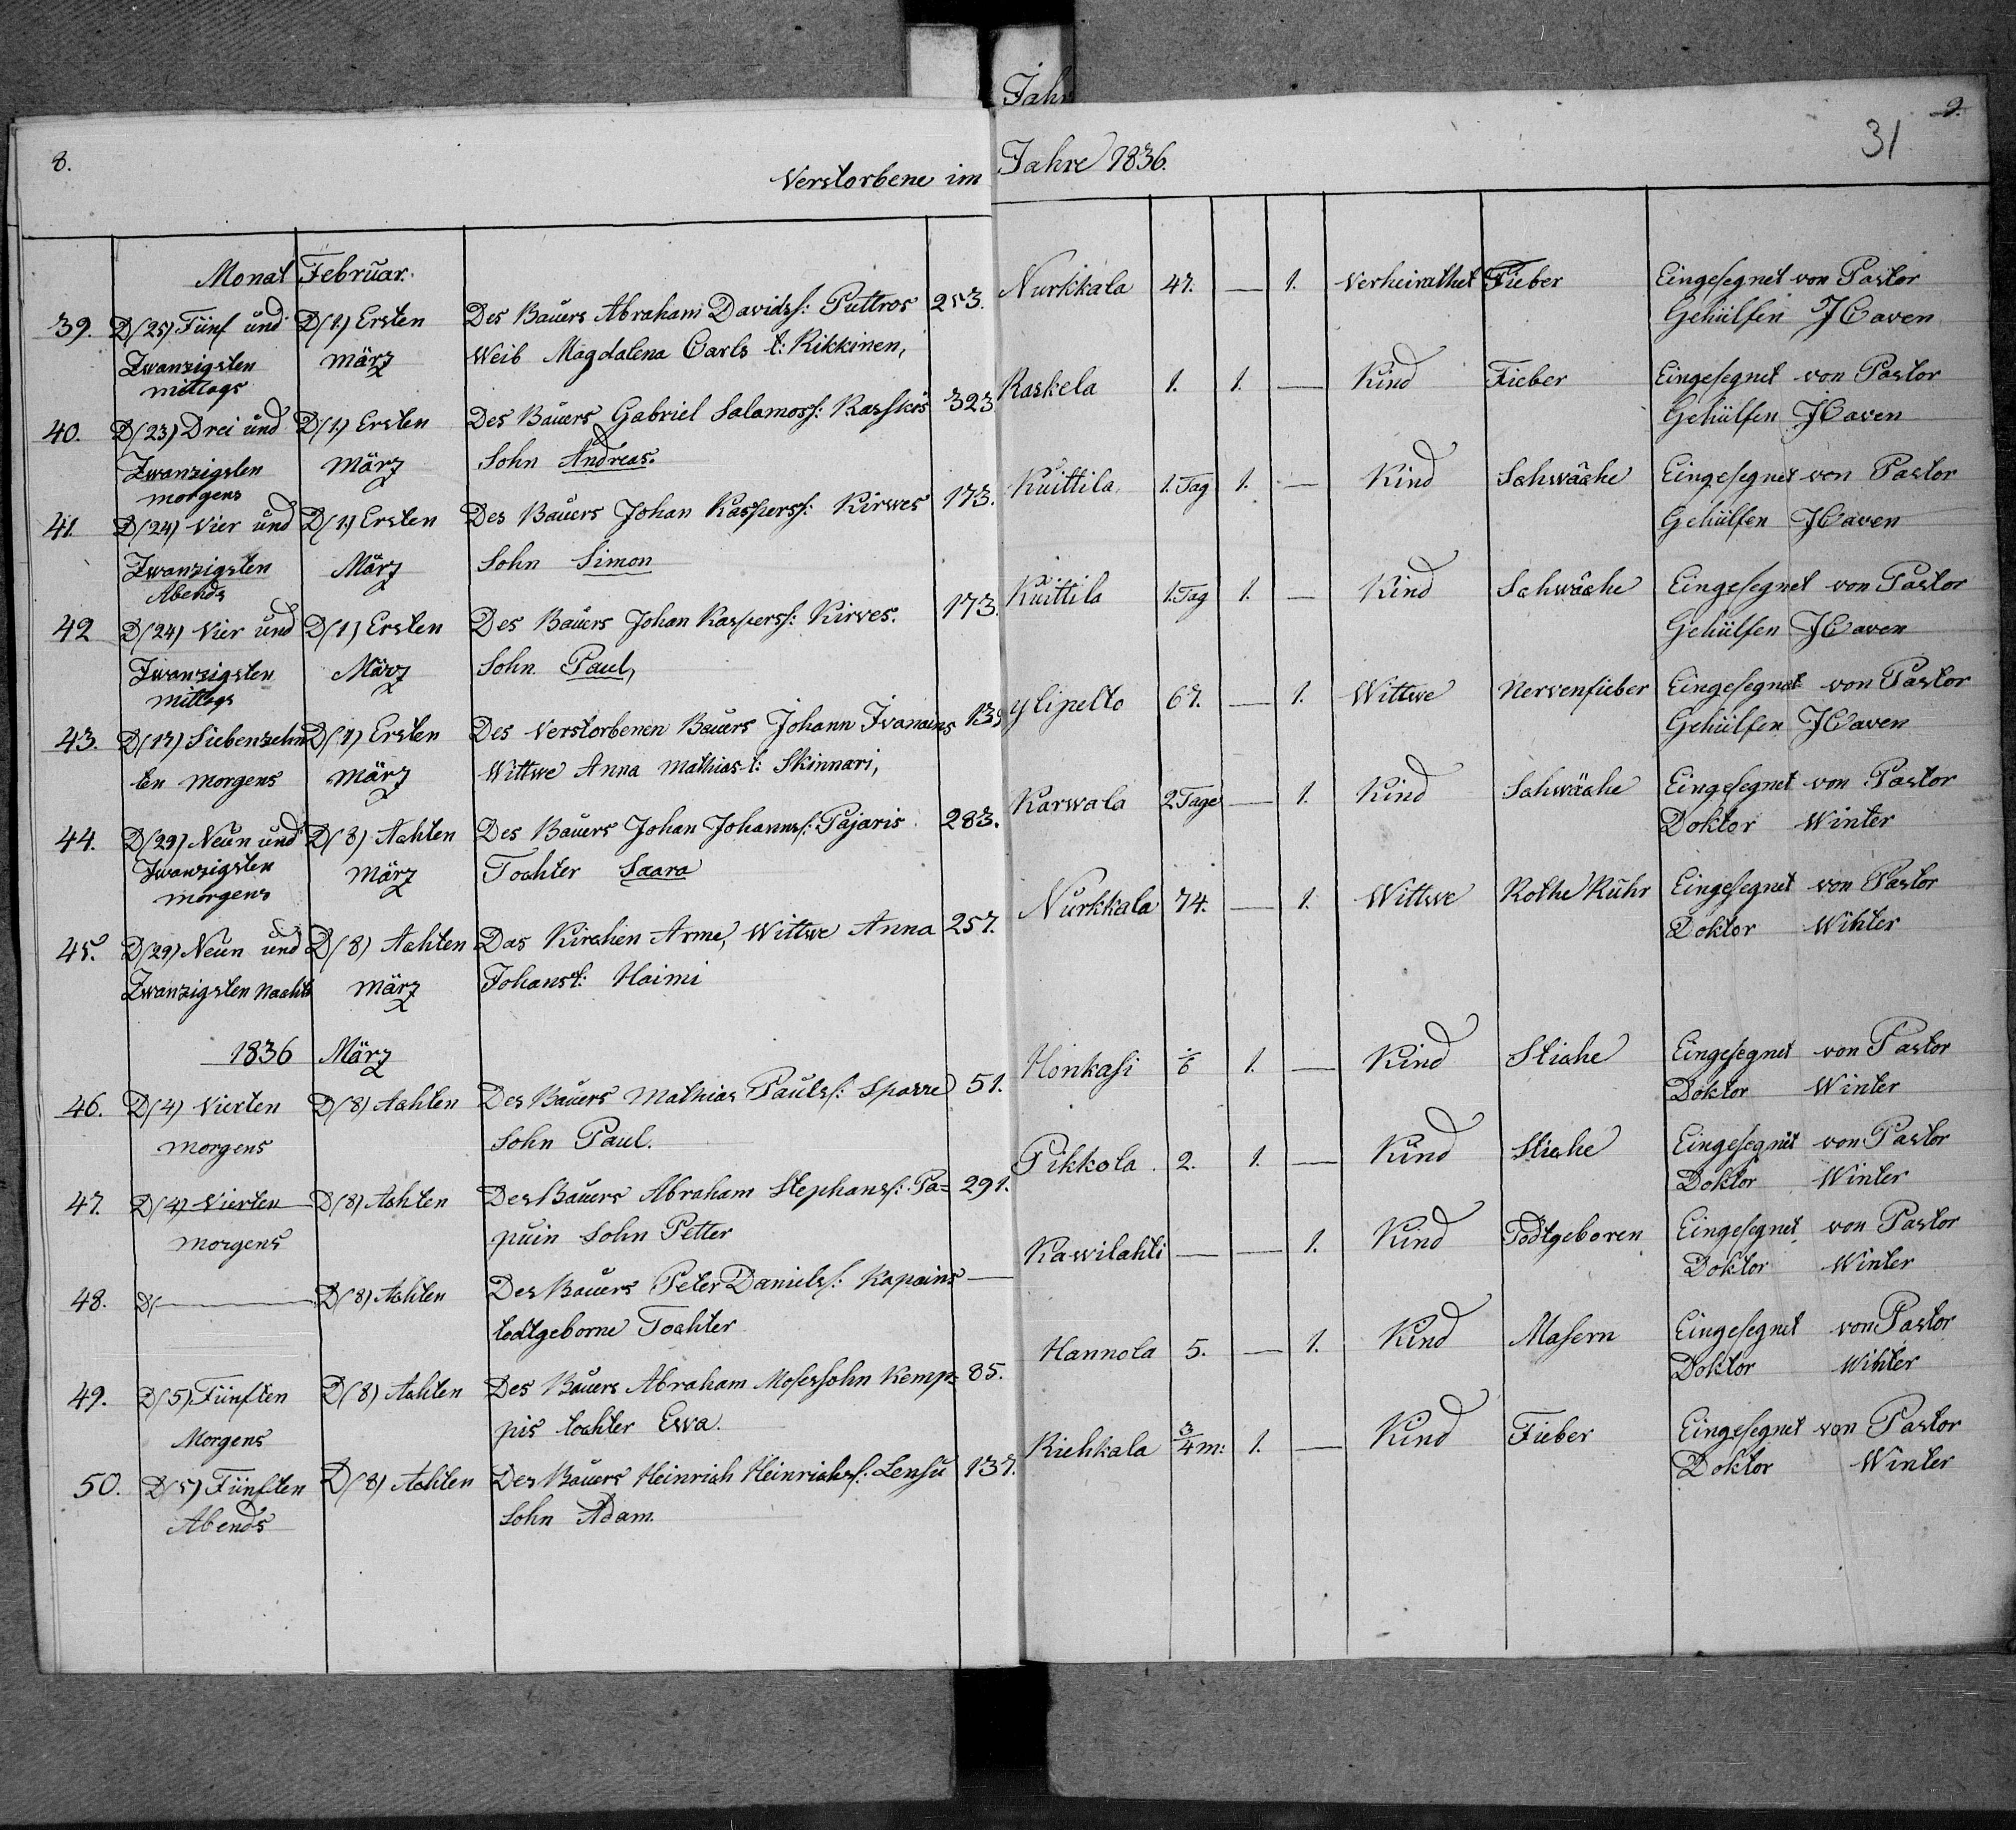 Jahr
8.
Verstorbene im Jahre 1836.
9.
31
Monat Februar.
39. D(25) Fünf und D(1) Ersten Des Bauers Abraham Davidss: Puttros 253. Nurkkala 47. — 1. Verheirathet Fieber Eingesegnet von Pastor
Zwanzigsten März Weib Magdalena Carls t: Rikkinen, Gehülfen JCaven
mittags
40. D(23) Drei und D(1) Ersten Des Bauers Gabriel Salamoss: Rasskös 323 Raskela 1. 1. — Kind Fieber Eingesegnet von Pastor
Zwanzigsten März Sohn Andreas. Gehülfen JCaven
morgens
41. D(24) Vier und D(1) Ersten Des Bauers Johan Kasperss: Kirwes 173. Kuittila 1. Tag 1. — Kind Schwäche Eingesegnet von Pastor
Zwanzigsten März Sohn Simon Gehülfen JCaven
Abends
42 D(24) Vier und D(1) Ersten Des Bauers Johan Kasperss: Kirves. 173. Kuittila 1. Tag 1. — Kind Schwäche Eingesegnet von Pastor
Zwanzigsten März Sohn Paul, Gehülfen JCaven
mittags
43. D(17) Siebenzehn D(1) Ersten Des Verstorbenen Bauers Johann Ivanains 139 Ylipelto 67. — 1. Wittwe Nervenfieber Eingesegnet von Pastor
ten Morgens März Wittwe Anna Mathias t: Skinnari, Gehülfen JCaven
44. D(29) Neun und D(8) Achten Des Bauers Johan Johannss: Pajaris 283. Karwala 2 Tage — 1. Kind Schwäche Eingesegnet von Pastor
Zwanzigsten März Tochter Saara Doktor Winter
morgens
45. D(29) Neun und D(8) Achten Das Kirchen Arme, Wittwe Anna 257. Nurkkala 74. — 1. Wittwe Rothe Ruhr Eingesegnet von Pastor
Zwanzigsten Nachts März Johanst: Haimi Doktor Winter
1836 März
46. D(4) Vierten D(8) Achten Des Bauers Mathias Paulss: Sparre 51. Honkasi 1. — Kind Stiche Eingesegnet von Pastor
morgens Sohn Paul. Doktor Winter
47. D(4) Vierten D(8) Achten Des Bauers Abraham Stephanss: Pa= 291. Pikkola 2. 1. — Kind Stiche Eingesegnet von Pastor
morgens puin Sohn Petter Doktor Winter
48. D(— D(8) Achten Des Bauers Peter Daniels: Kapains — Kawilahti — — 1. Kind Todtgeboren Eingesegnet von Pastor
todtgeborne Tochter Doktor Winter
49. D(5) Fünften D(8) Achten Des Bauers Abraham Mosessohn Kemp= 85. Hannola 5. — 1. Kind Masern Eingesegnet von Pastor
Morgens pis tochter Ewa. Doktor Winter
50. D(5) Fünften D(8) Achten Des Bauers Heinrich Heinrichss: Lensu 137. Riehkala 3/4 m: 1. — Kind Fieber Eingesegnet von Pastor
Abends Sohn Adam. Doktor Winter